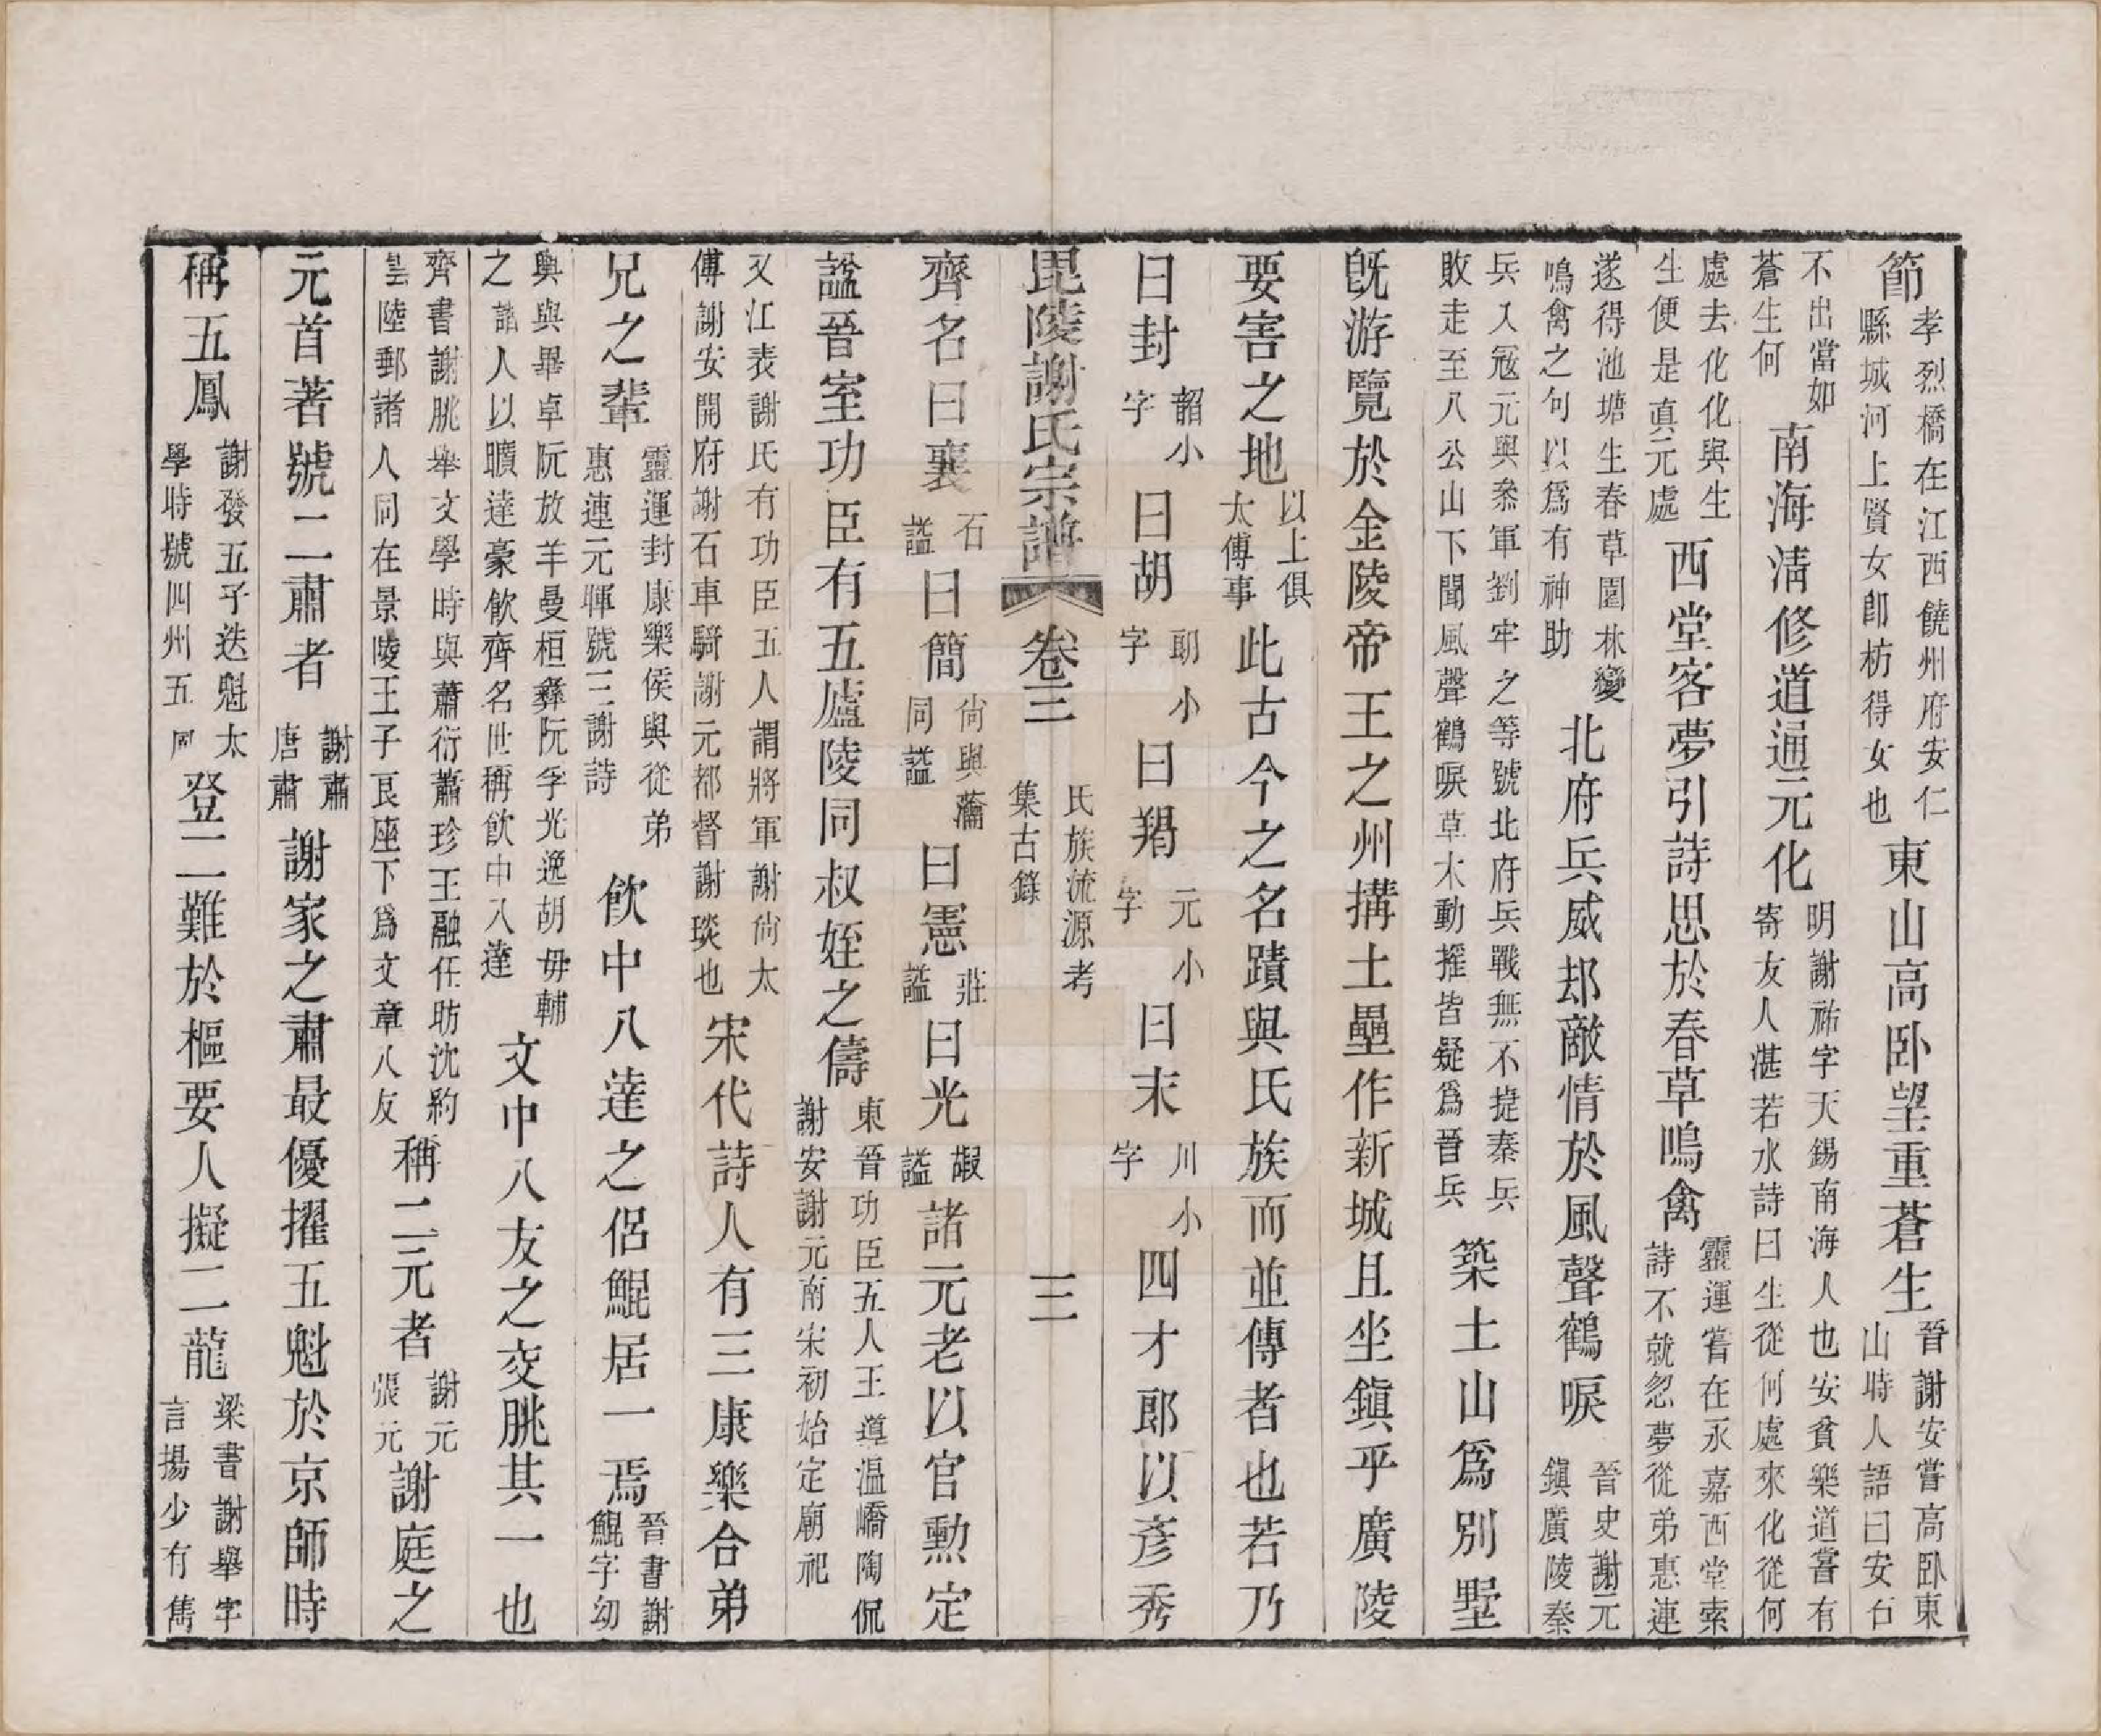 節孝烈橋在江西饒州府安仁縣城河上賢女卽枋得女也東山高卧望重蒼生晉謝安嘗高卧東山時人語曰安石
不出當如蒼生何南海淸修道通元化明謝祐字天錫南海人也安貧樂道嘗有寄友人湛若水詩曰生從何處來化從何
處去化化與生生便是眞元處西堂客夢引詩思於春草鳴禽靈運嘗在永嘉西堂索詩不就忽夢從弟惠連
遂得池塘生春草園林變鳴禽之句以爲有神助北府兵威却敵情於風聲鶴唳晉史謝元鎭廣陵秦
兵入寇元與叅軍劉牢之等號北府兵戰無不捷秦兵敗走至八公山下聞風聲鶴唳草木動摧皆疑爲晉兵築土山爲別墅
旣游覽於金陵帝王之州搆土壘作新城且坐鎭乎廣陵
要害之地以上俱太傅事此古今之名蹟與氏族而並傳者也若乃
曰封韶小字曰胡朗小字曰羯元小字曰末川小字四才郎以彥秀
毘陵謝氏宗譜 卷三 氏族流源考集古錄 三
齊名曰襄石諡曰簡尙與藩同諡曰憲莊諡曰光嘏諡諸元老以官勲定
諡晉室功臣有五廬陵同叔姪之儔東晉功臣五人王導温嶠陶侃謝安謝元南宋初始定廟祀
又江表謝氏有功臣五人謂將軍謝尙太傅謝安開府謝石車騎謝元都督謝琰也宋代詩人有三康樂合弟
兄之輩靈運封康樂侯與從弟惠連元暉號三謝詩飮中八達之侶鯤居一焉晉書謝鯤字幼
輿與畢卓阮放羊曼桓彝阮孚光逸胡毋輔之諸人以曠達豪飮齊名世稱飮中八達文中八友之交朓其一也
齊書謝朓舉文學時與蕭衍蕭珍王融任昉沈約與陸郵諸人同在景陵王子良座下爲文章八友稱二元者謝元張元謝庭之
元首著號二肅者謝肅唐肅謝家之肅最優擢五魁於京師時
稱五鳳謝發五子迭魁太學時號四州五鳳登二難於樞要人擬二龍梁書謝舉字言揚少有雋